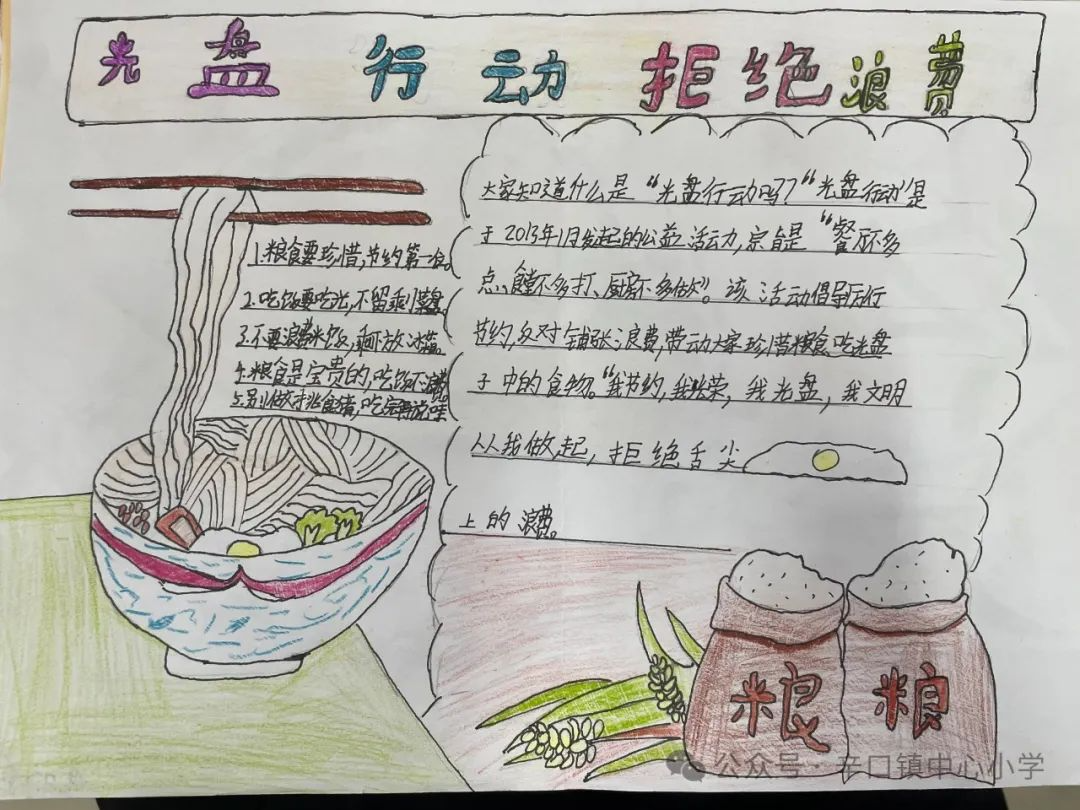 光盘 行动 拒绝浪费
1.粮食要珍惜,节约第一位。
2.吃饭要吃光,不留剩菜盘。
3.不要浪费米饭,剩下放冰箱。
4.粮食是宝贵的,吃饭不浪费。
5.别做挑食猪,吃完再说哇
大家知道什么是“光盘行动吗?“光盘行动”是
于2013年1月发起的公益活动,宗旨是“餐厅不多
点、食堂不多打、厨房不多做”。该活动倡导厉行
节约,反对铺张浪费,带动大家珍惜粮食吃光盘
子中的食物。“我节约,我光荣,我光盘,我文明
从我做起,拒绝舌尖
上的浪费。
粮 粮
公众号·辛口镇中心小学